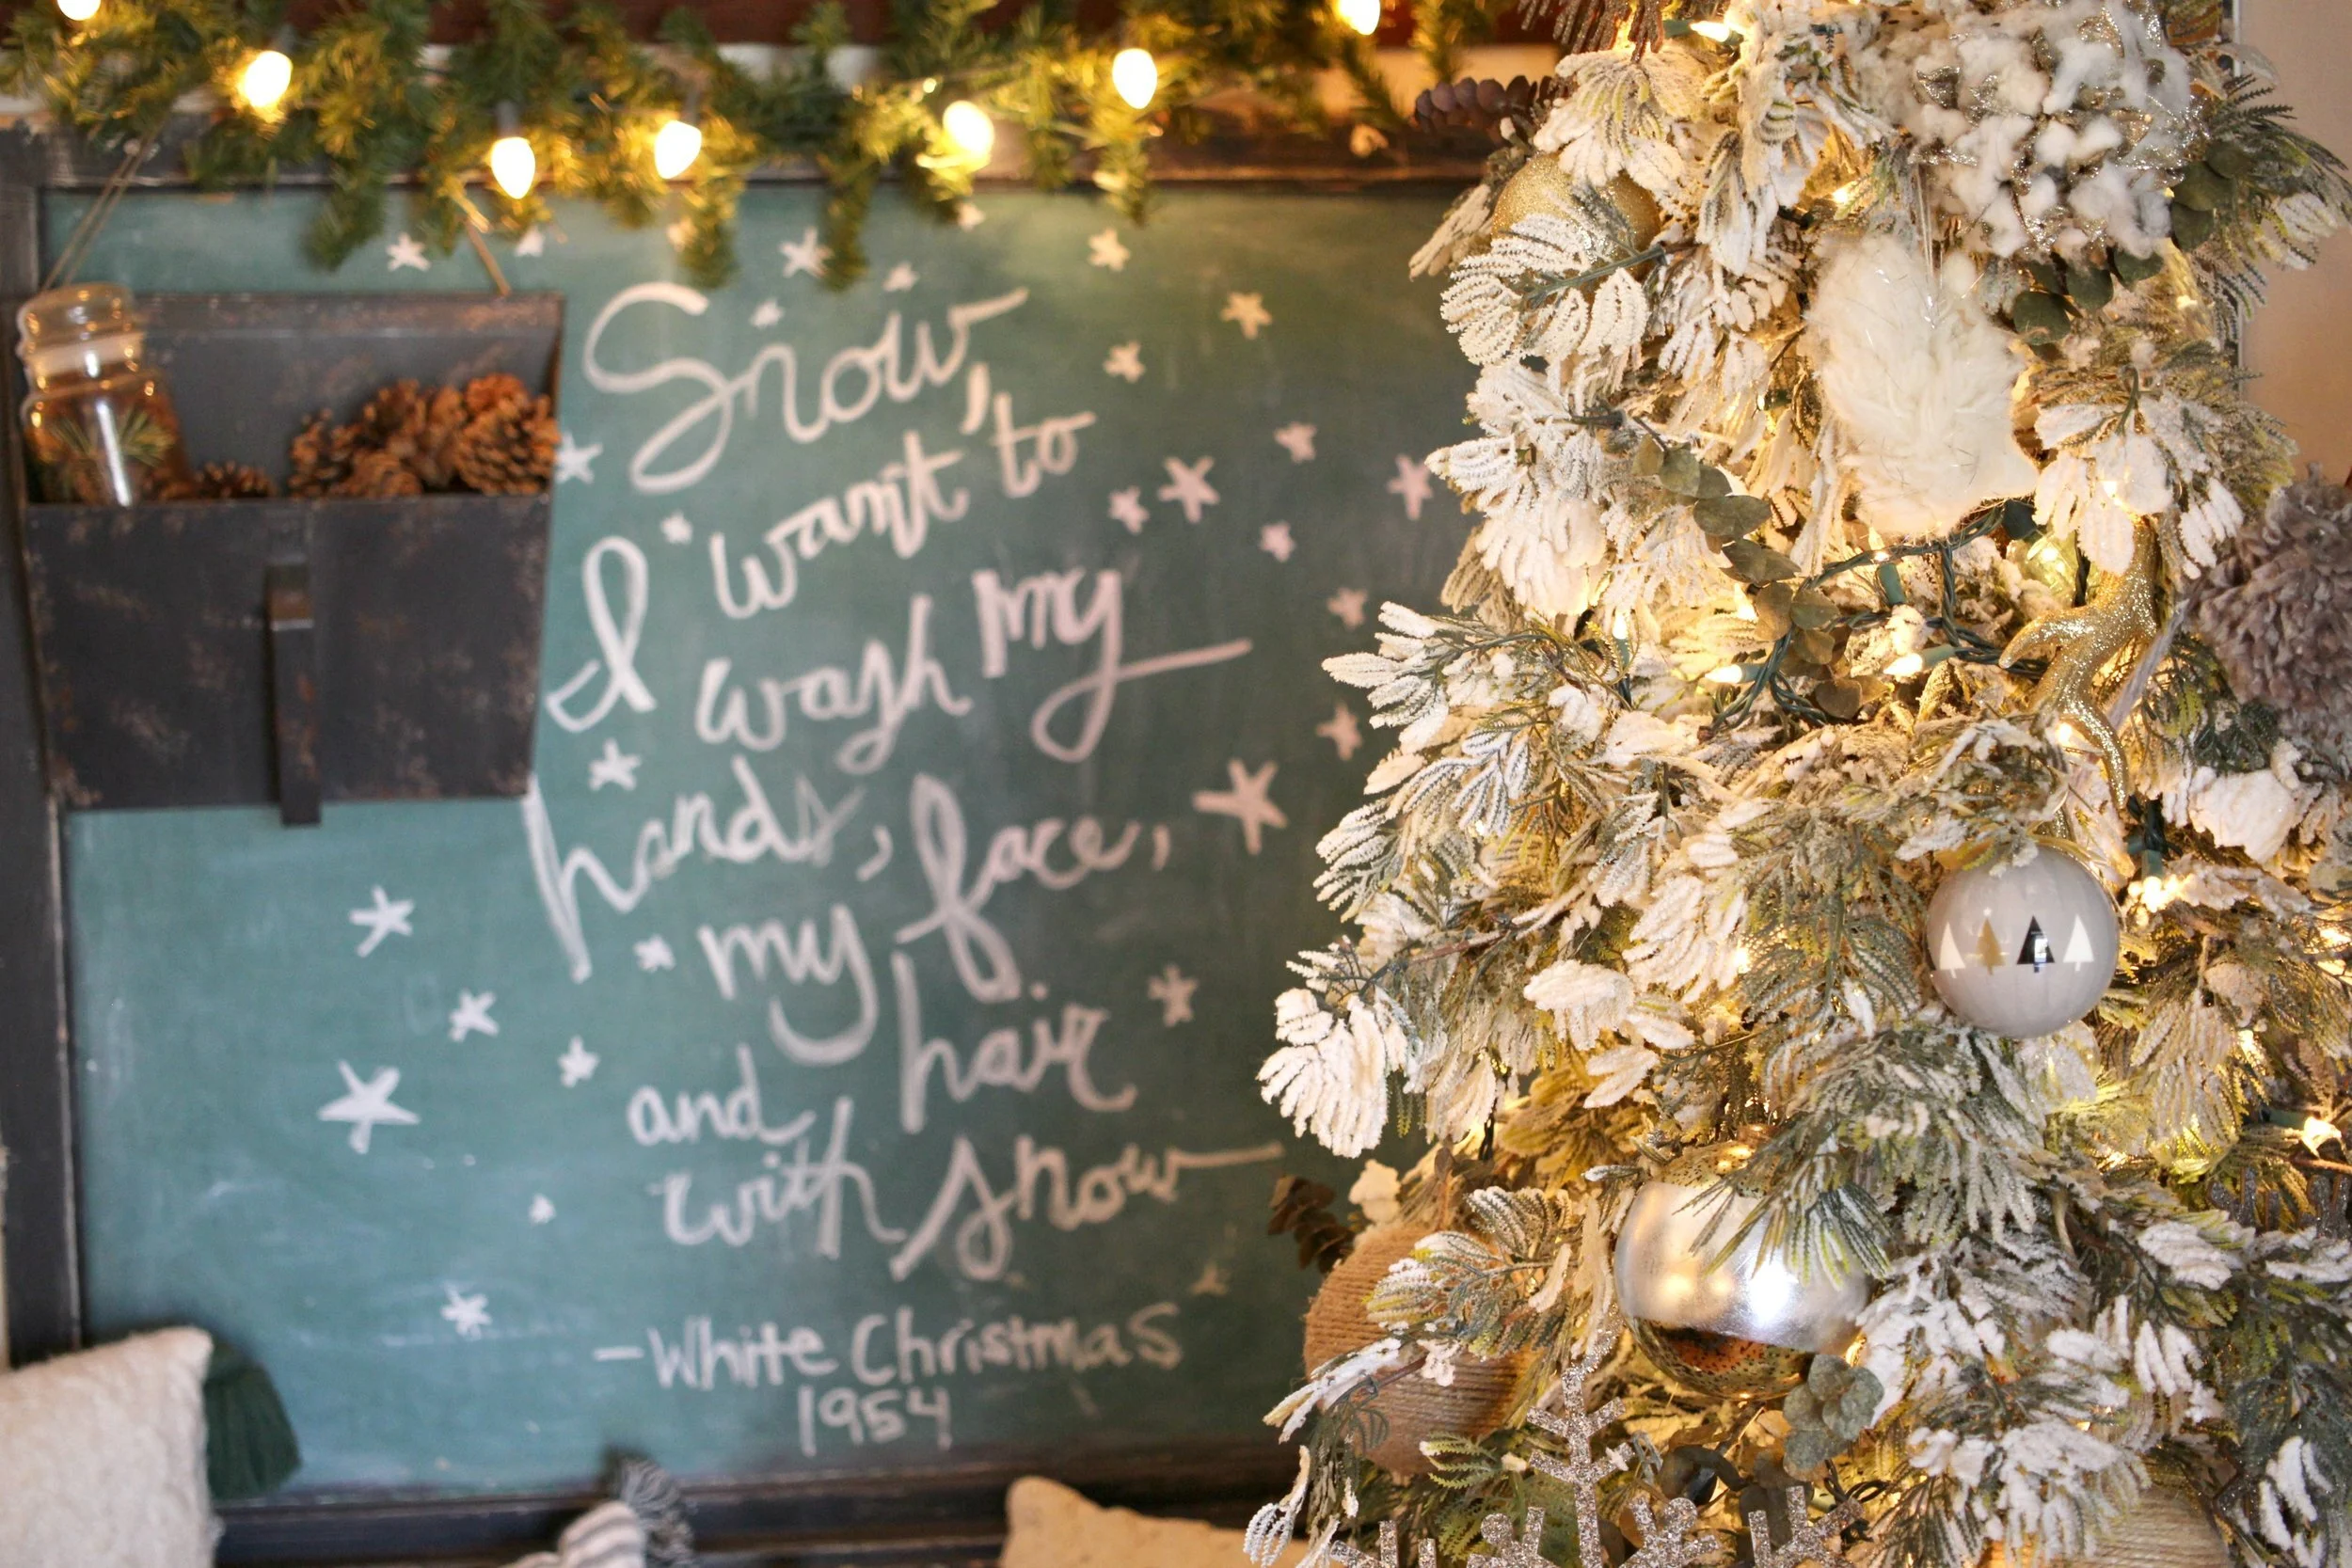 Snow,
I want to
wash my
hands, face,
my hair
and
with snow
- White Christmas
1954